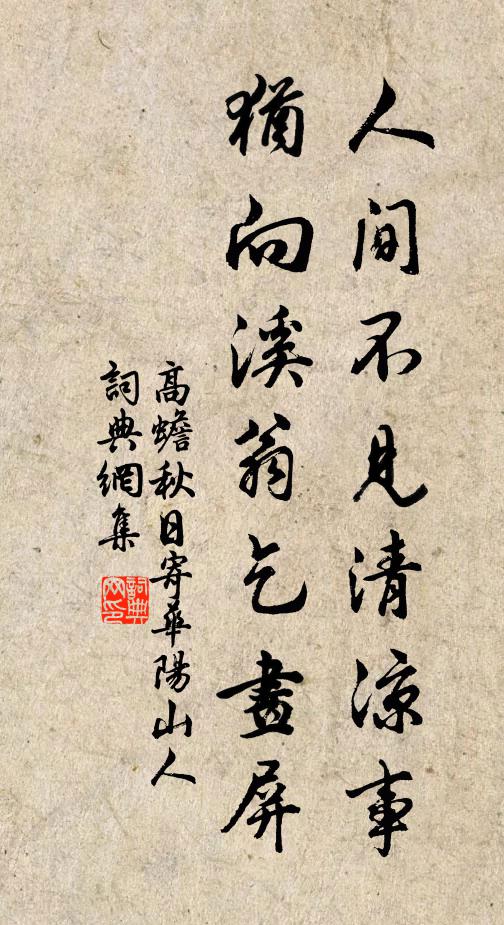 人間不見清涼事
猶向溪翁乞畫屏
高蟾秋日寄華陽山人
詞典網集
詞典網印